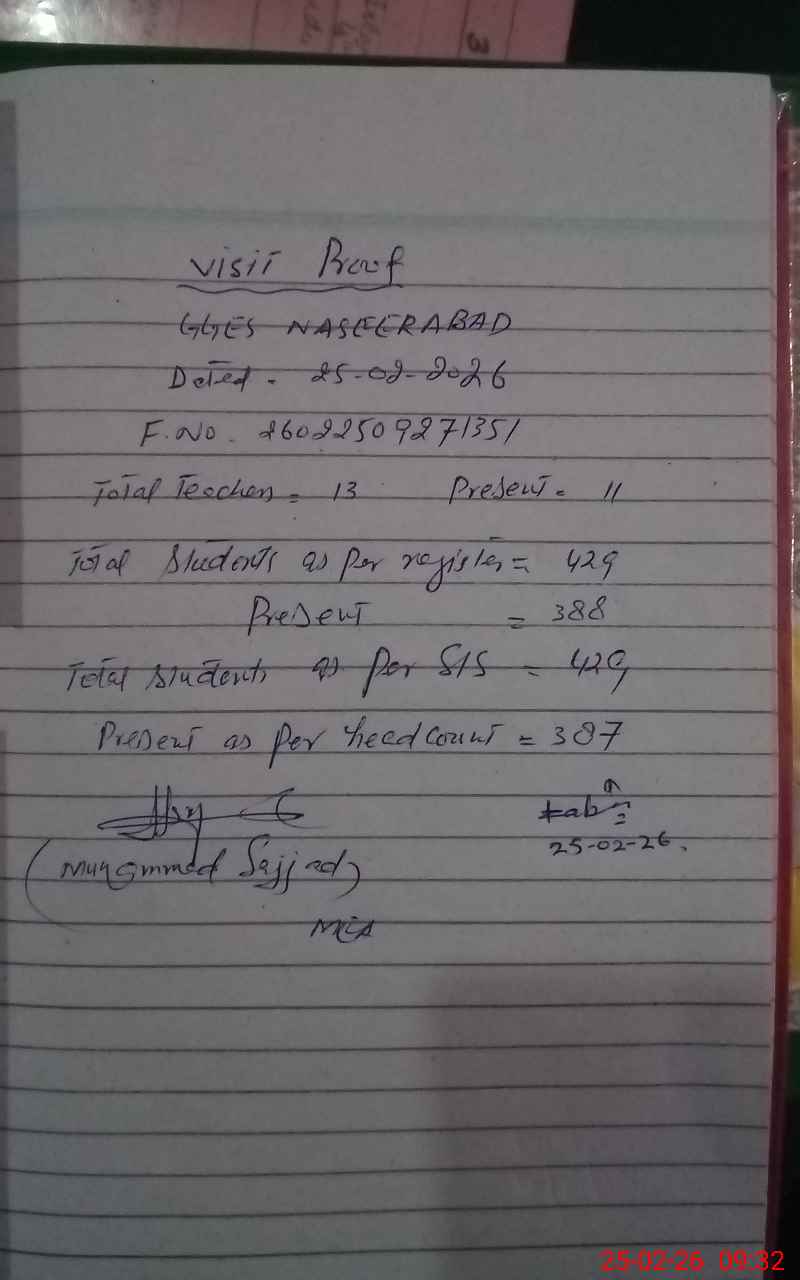 3
Visit Proof
GGES NASEERABAD
Dated - 25-02-2026
F.No. 26022509271351
Total Teachers = 13 Present = 11
Total Students as per register = 429
Present = 388
Total Students as per SIS = 429
Present as per headcount = 387
25-02-26.
(Muhammad Sajjad)
MEA
25-02-26 09:32